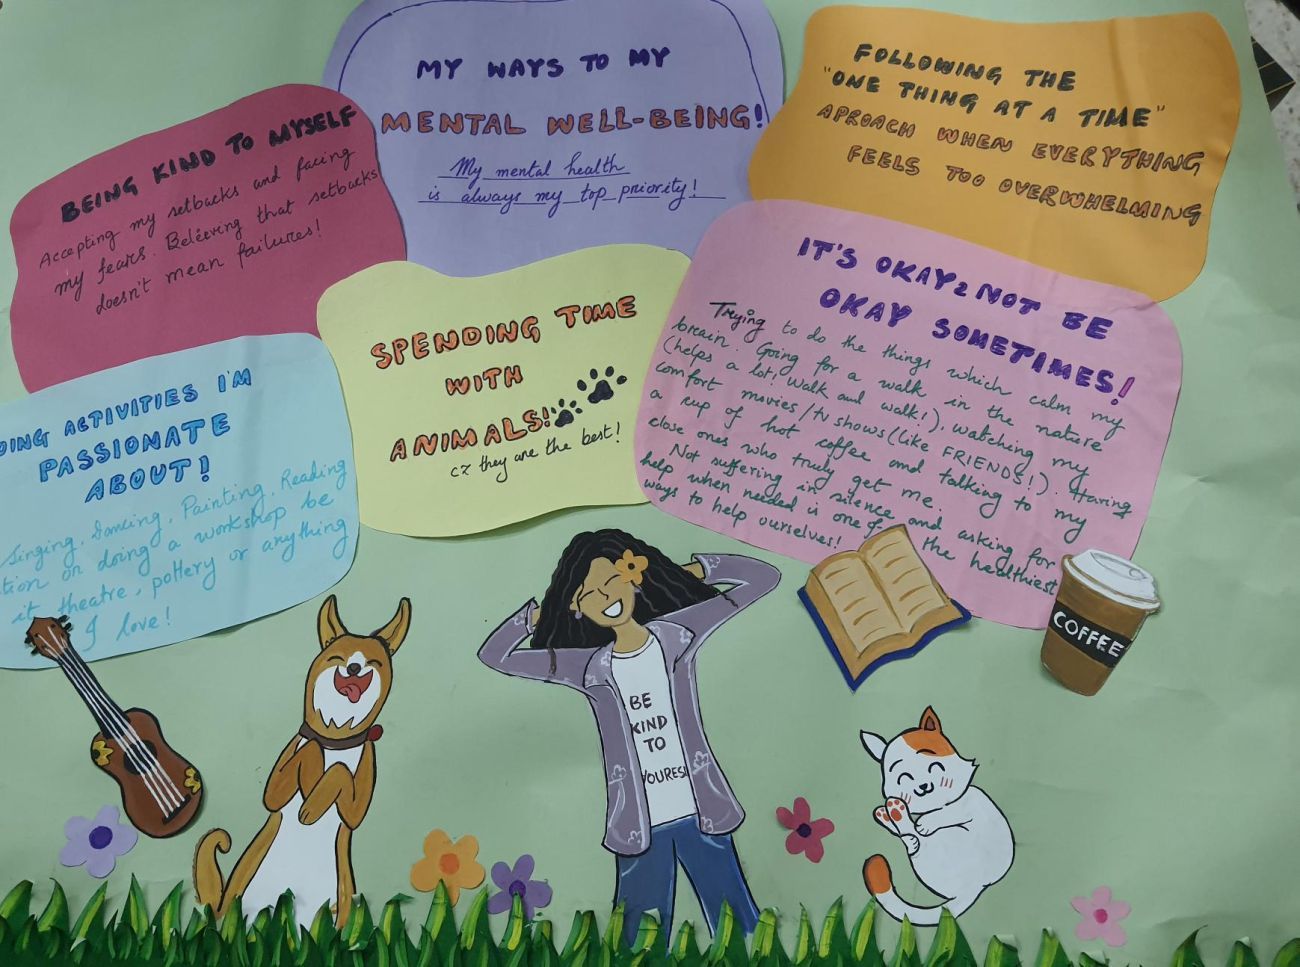 MY WAYS TO MY
MENTAL WELL-BEING!
My mental health
is always my top priority!
BEING KIND TO MYSELF
Accepting my setbacks and facing
my fears. Beleeving that setbacks
doesn't mean failures!
FOLLOWING THE
"ONE THING AT A TIME"
APROACH WHEN EVERYTHING
FEELS TOO OVERWHELMING
SPENDING TIME
WITH
ANIMALS!
cz they are the best!
IT'S OKAY2 NOT BE
OKAY SOMETIMES!
Trying to do the things which calm my
brain. Going for a walk in the nature
(helps a lot! Walk and walk!), watching my
comfort movies/tv shows (like FRIENDS!). Having
a cup of hot coffee and talking to my
close ones who truly get me.
Not suffering in silence and asking for
help when needed is one of the healthiest
ways to help ourselves!
OING ACTIVITIES I'M
PASSIONATE
ABOUT!
Singing, Dancing, Painting, Reading
tion or doing a workshop be
it theatre, pottery or anything
I love!
BE
KIND
TO
YOURES
COFFEE